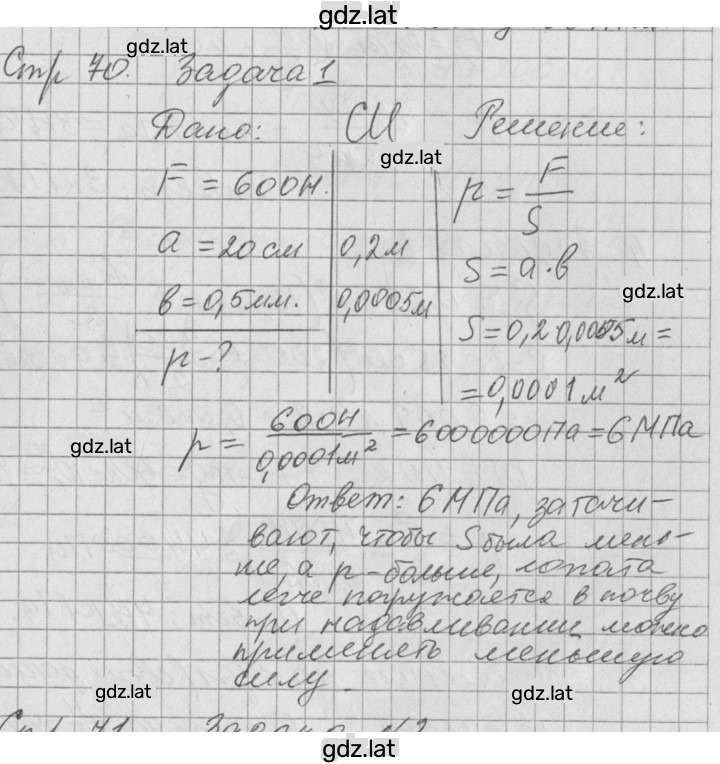 gdz.lat
gdz.lat
Стр 70. Задача 1
Дано: СИ Решение:
gdz.lat
F = 600Н. p = F/S
a = 20 см 0,2 м S = a · в
gdz.lat
в = 0,5 мм. 0,0005 м
p - ? S = 0,2 0,0005 м =
= 0,0001 м²
gdz.lat
p = 600Н/0,0001 м² = 6000000Па = 6 МПа
Ответ: 6 МПа, затачи-
вают, чтобы S была мень-
ше, а p - больше, лопата
легче погружается в почву
при надавливании можно
применять меньшую
силу.
gdz.lat
gdz.lat
Стр 71. Задача №2
gdz.lat